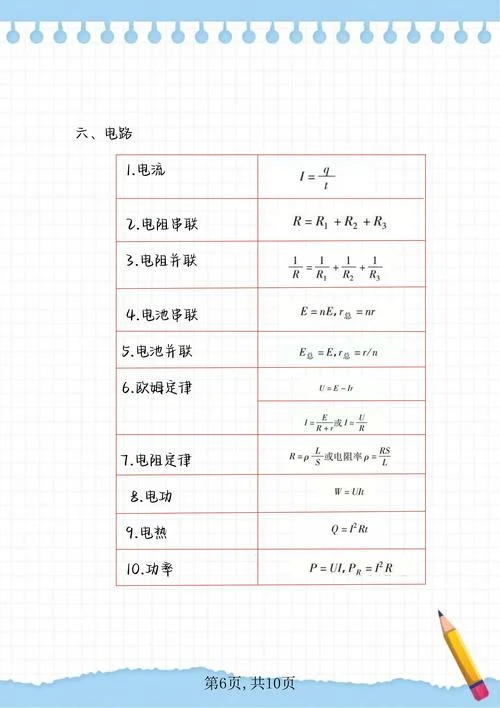 六、电路
1.电流 I=q/t
2.电阻串联 R=R₁+R₂+R₃
3.电阻并联 1/R=1/R₁+1/R₂+1/R₃
4.电池串联 E=nE,r总=nr
5.电池并联 E总=E,r总=r/n
6.欧姆定律 U=E-Ir
I=E/R+r或I=U/R
7.电阻定律 R=ρL/S或电阻率ρ=RS/L
8.电功 W=UIt
9.电热 Q=I²Rt
10.功率 P=UI,P_R=I²R
第6页,共10页